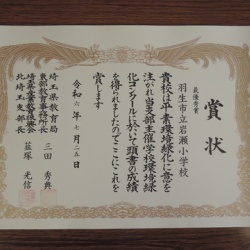 最優秀賞
賞状
羽生市立岩瀬小学校
貴校は平素環境緑化に意を
注がれ当支部主催学校環境緑
化コンクールに於いて頭書の成績
を得られましたのでここにこれを
賞します
令和六年七月二五日
埼玉県教育局
東部教育事務所長 三田秀典
北埼玉支部長 韮塚光信